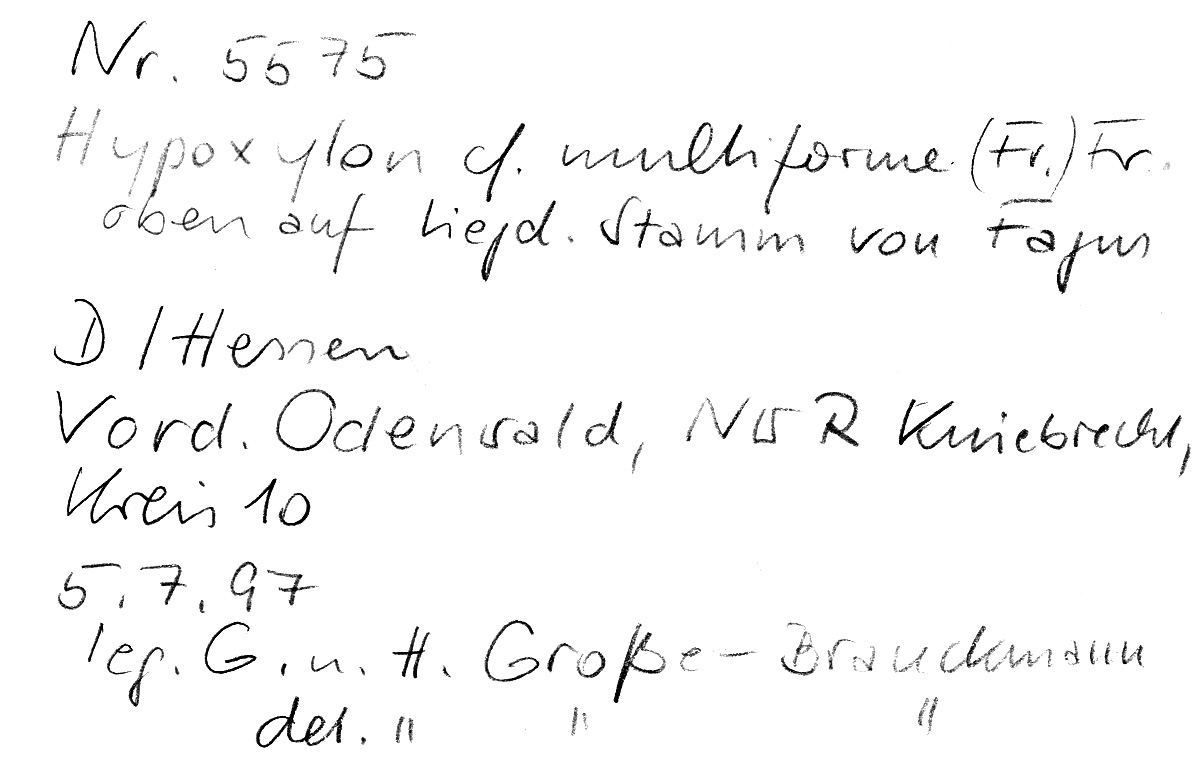 Nr. 5575
Hypoxylon cf. multiforme (Fr.) Fr.
oben auf liegd. Stamm von Fagus
D / Hessen
Vord. Odenwald, NWR Kniebrecht,
Kreis 10
5.7.97
leg. G. u. H. Große-Brauckmann
det. " " "